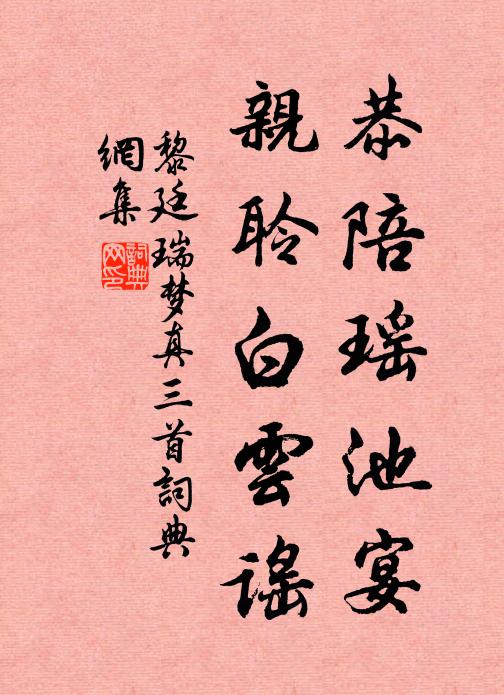 恭陪瑶池宴
親聆白雲謠
黎廷瑞梦真三首詞典
網集
詞典
网印